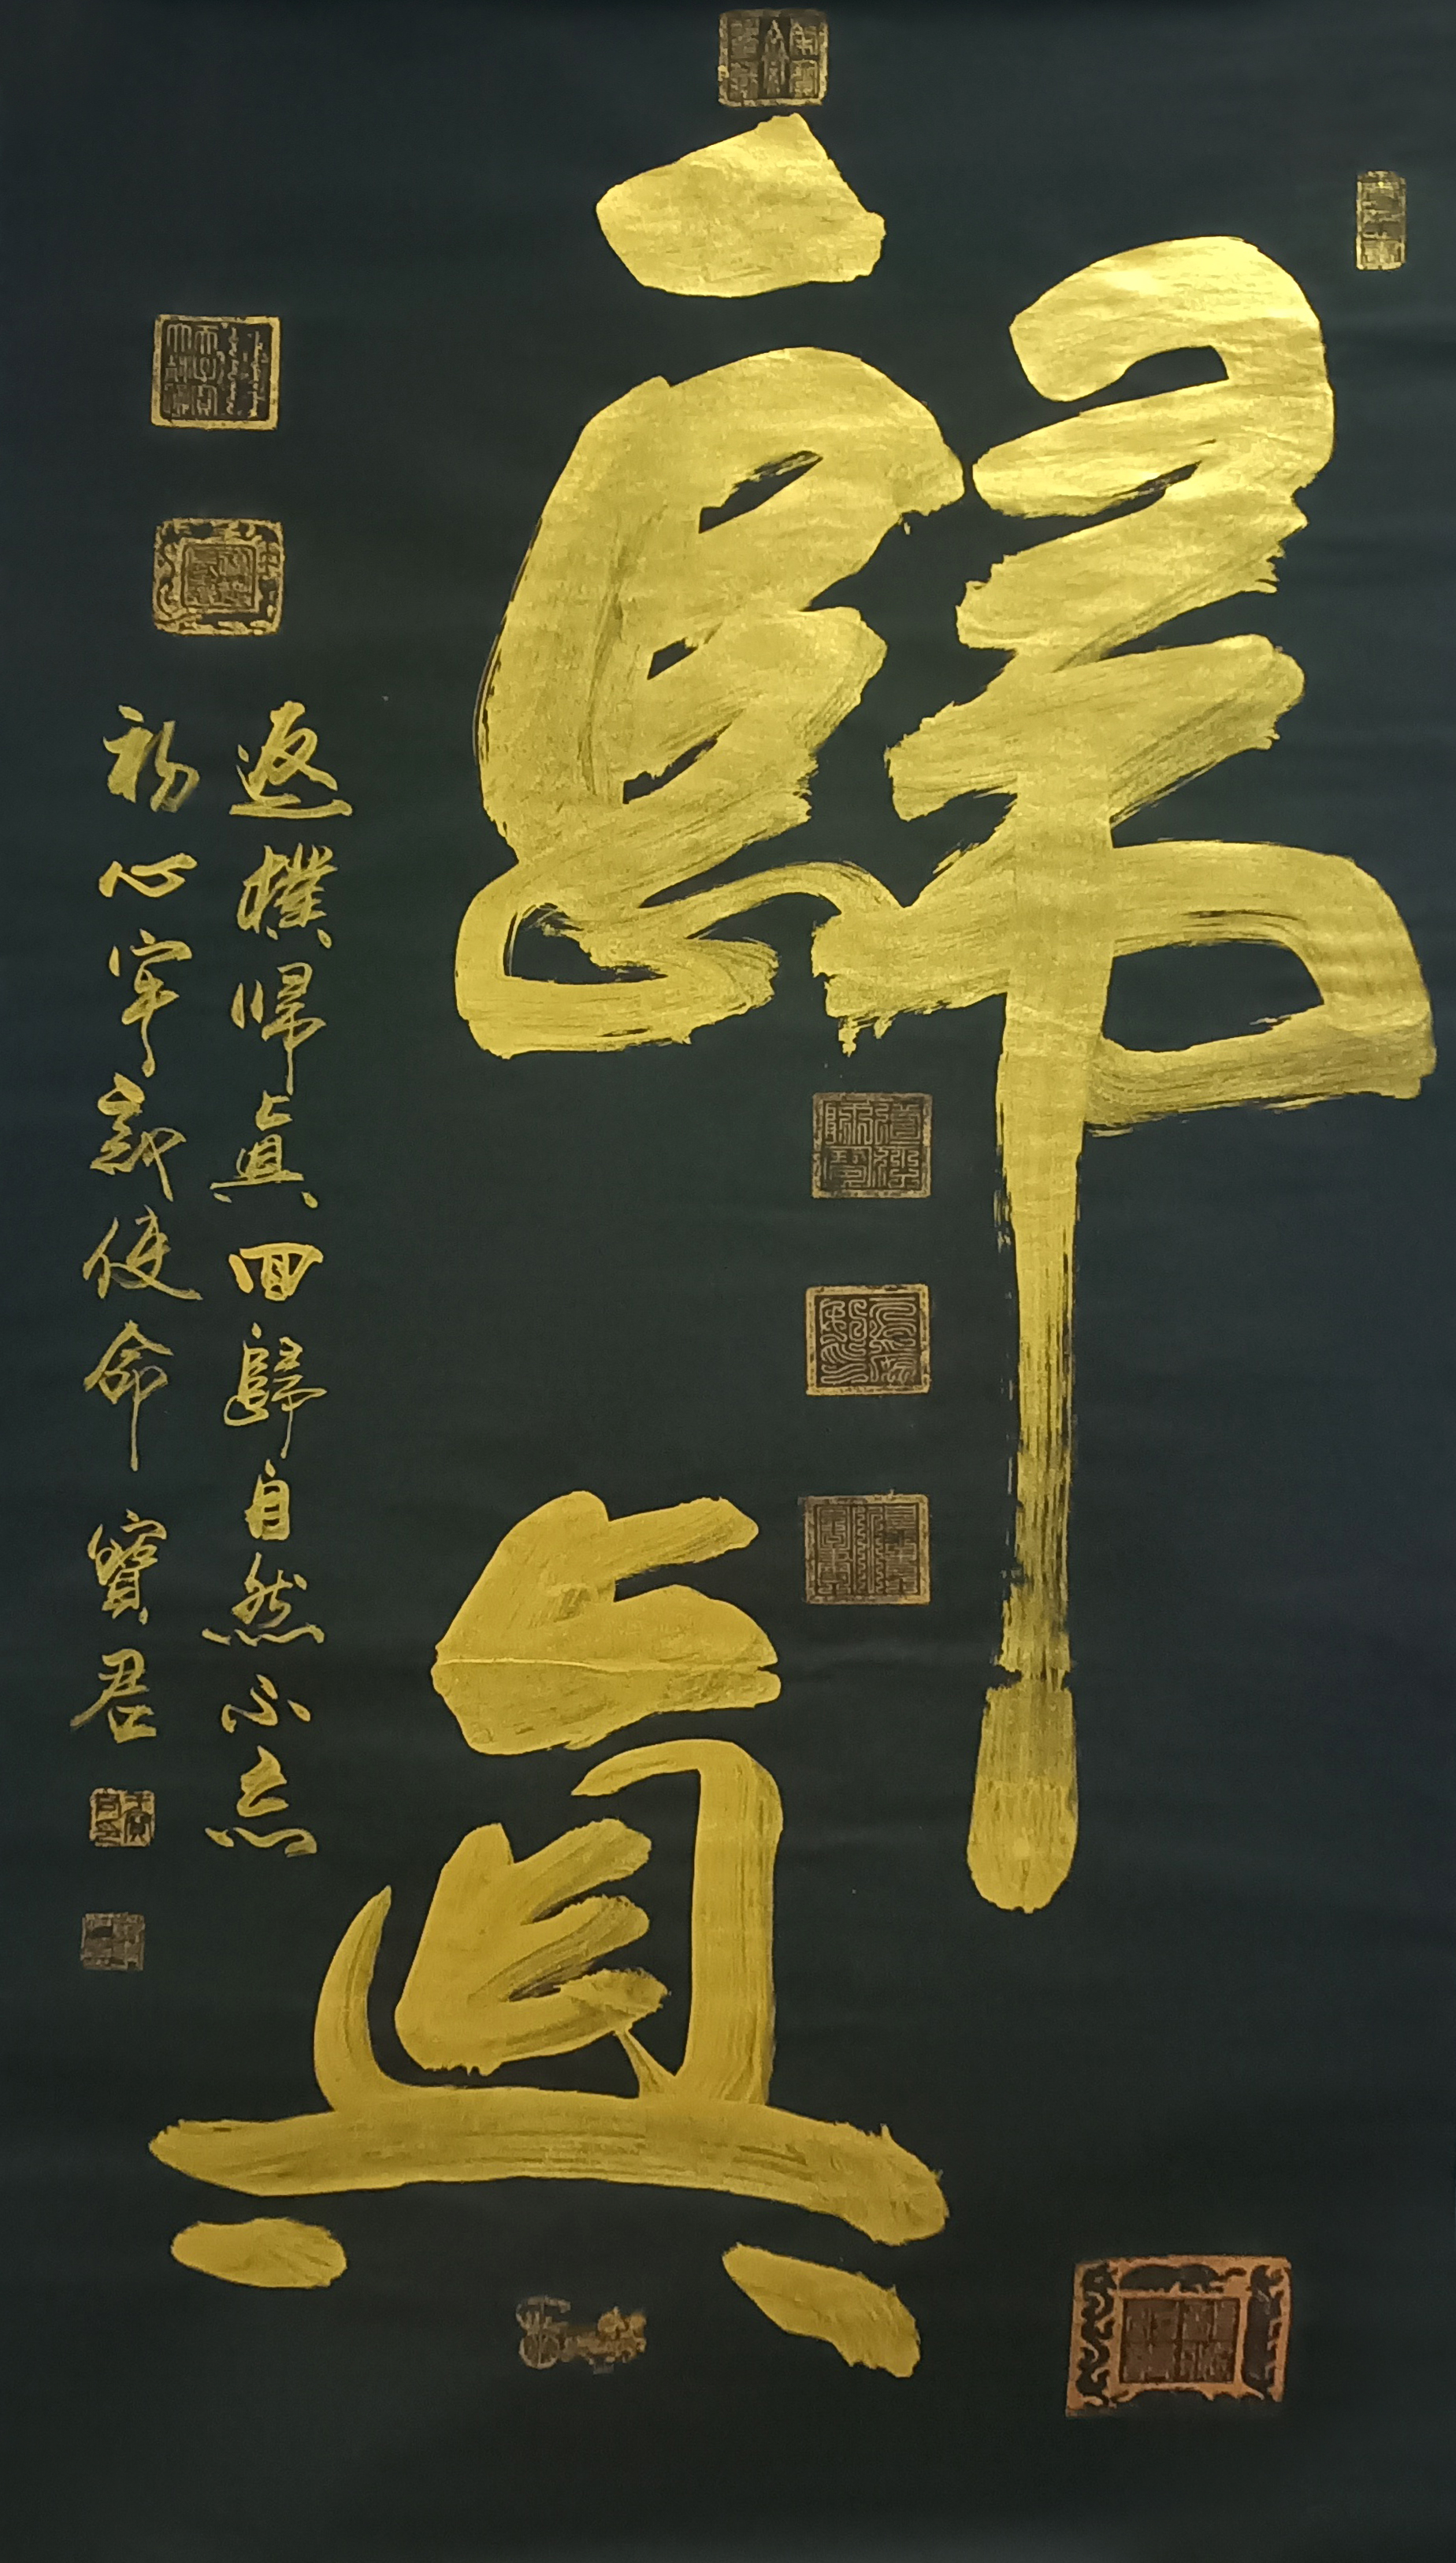 歸真
返樸歸真回歸自然不忘
初心牢記使命 寶君